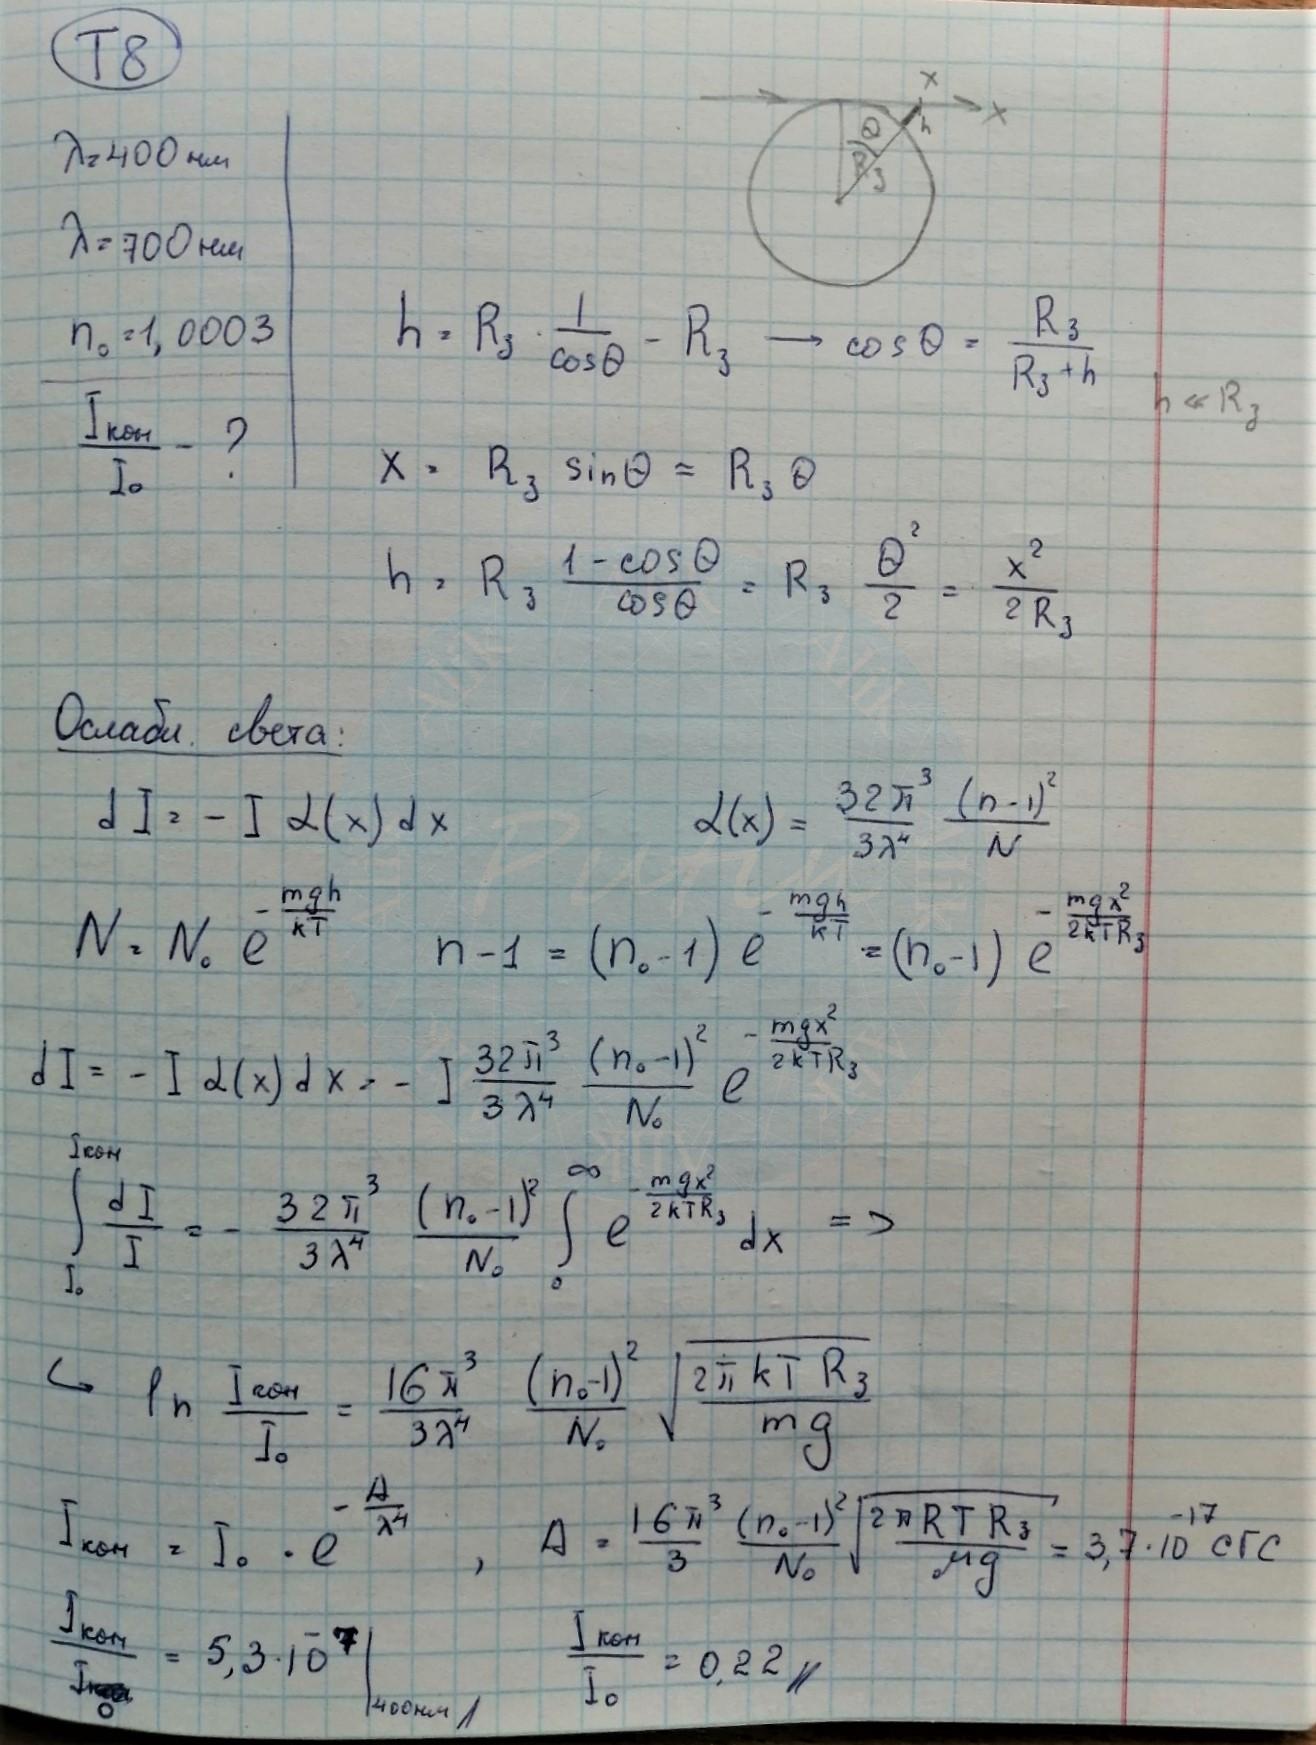 T8
λ=400 нм
λ=700 нм
n₀=1,0003
Iкон/I₀ - ?
x
x
θ
h
R₃
h = R₃ · 1/cosθ - R₃ → cosθ = R₃/(R₃+h)
h << R₃
x = R₃ sinθ ≈ R₃ θ
h = R₃ (1-cosθ)/cosθ = R₃ θ²/2 = x²/2R₃
Ослабл. света:
dI = -I α(x) dx α(x) = 32π³/3λ⁴ (n-1)²/N
N = N₀ e^(-mgh/kT) n-1 = (n₀-1) e^(-mgh/kT) = (n₀-1) e^(-mgx²/2kTR₃)
dI = -I α(x) dx = - I 32π³/3λ⁴ (n₀-1)²/N₀ e^(-mgx²/2kTR₃)
∫_I₀^Iкон dI/I = - 32π³/3λ⁴ (n₀-1)²/N₀ ∫_0^∞ e^(-mgx²/2kTR₃) dx =>
↪ ln Iкон/I₀ = 16π³/3λ⁴ (n₀-1)²/N₀ √(2πkTR₃/mg)
Iкон = I₀ · e^(-A/λ⁴) , A = 16π³/3 (n₀-1)²/N₀ √(2πRTR₃/μg) = 3,7·10⁻¹⁷ СГС
Iкон/I₀ = 5,3·10⁻⁷ |400нм // Iкон/I₀ = 0,22 //
Alik
Alik